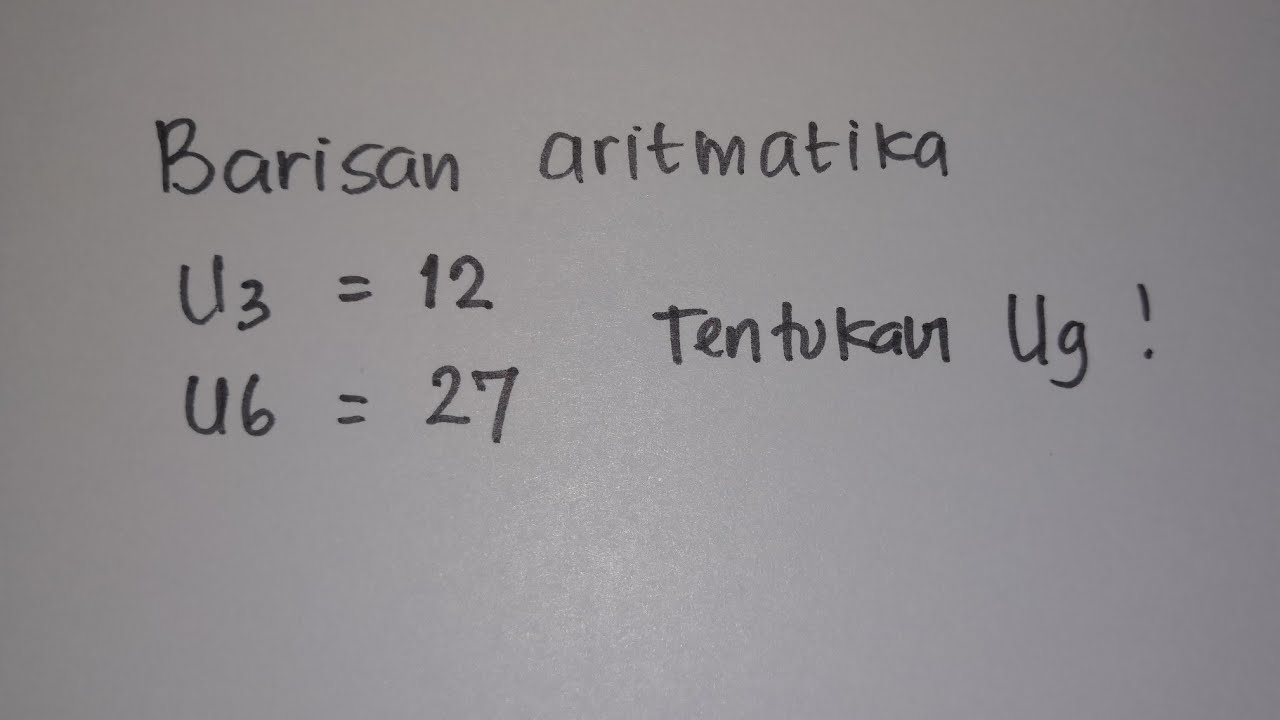 Barisan aritmatika
U3 = 12
U6 = 27
Tentukan U9 !